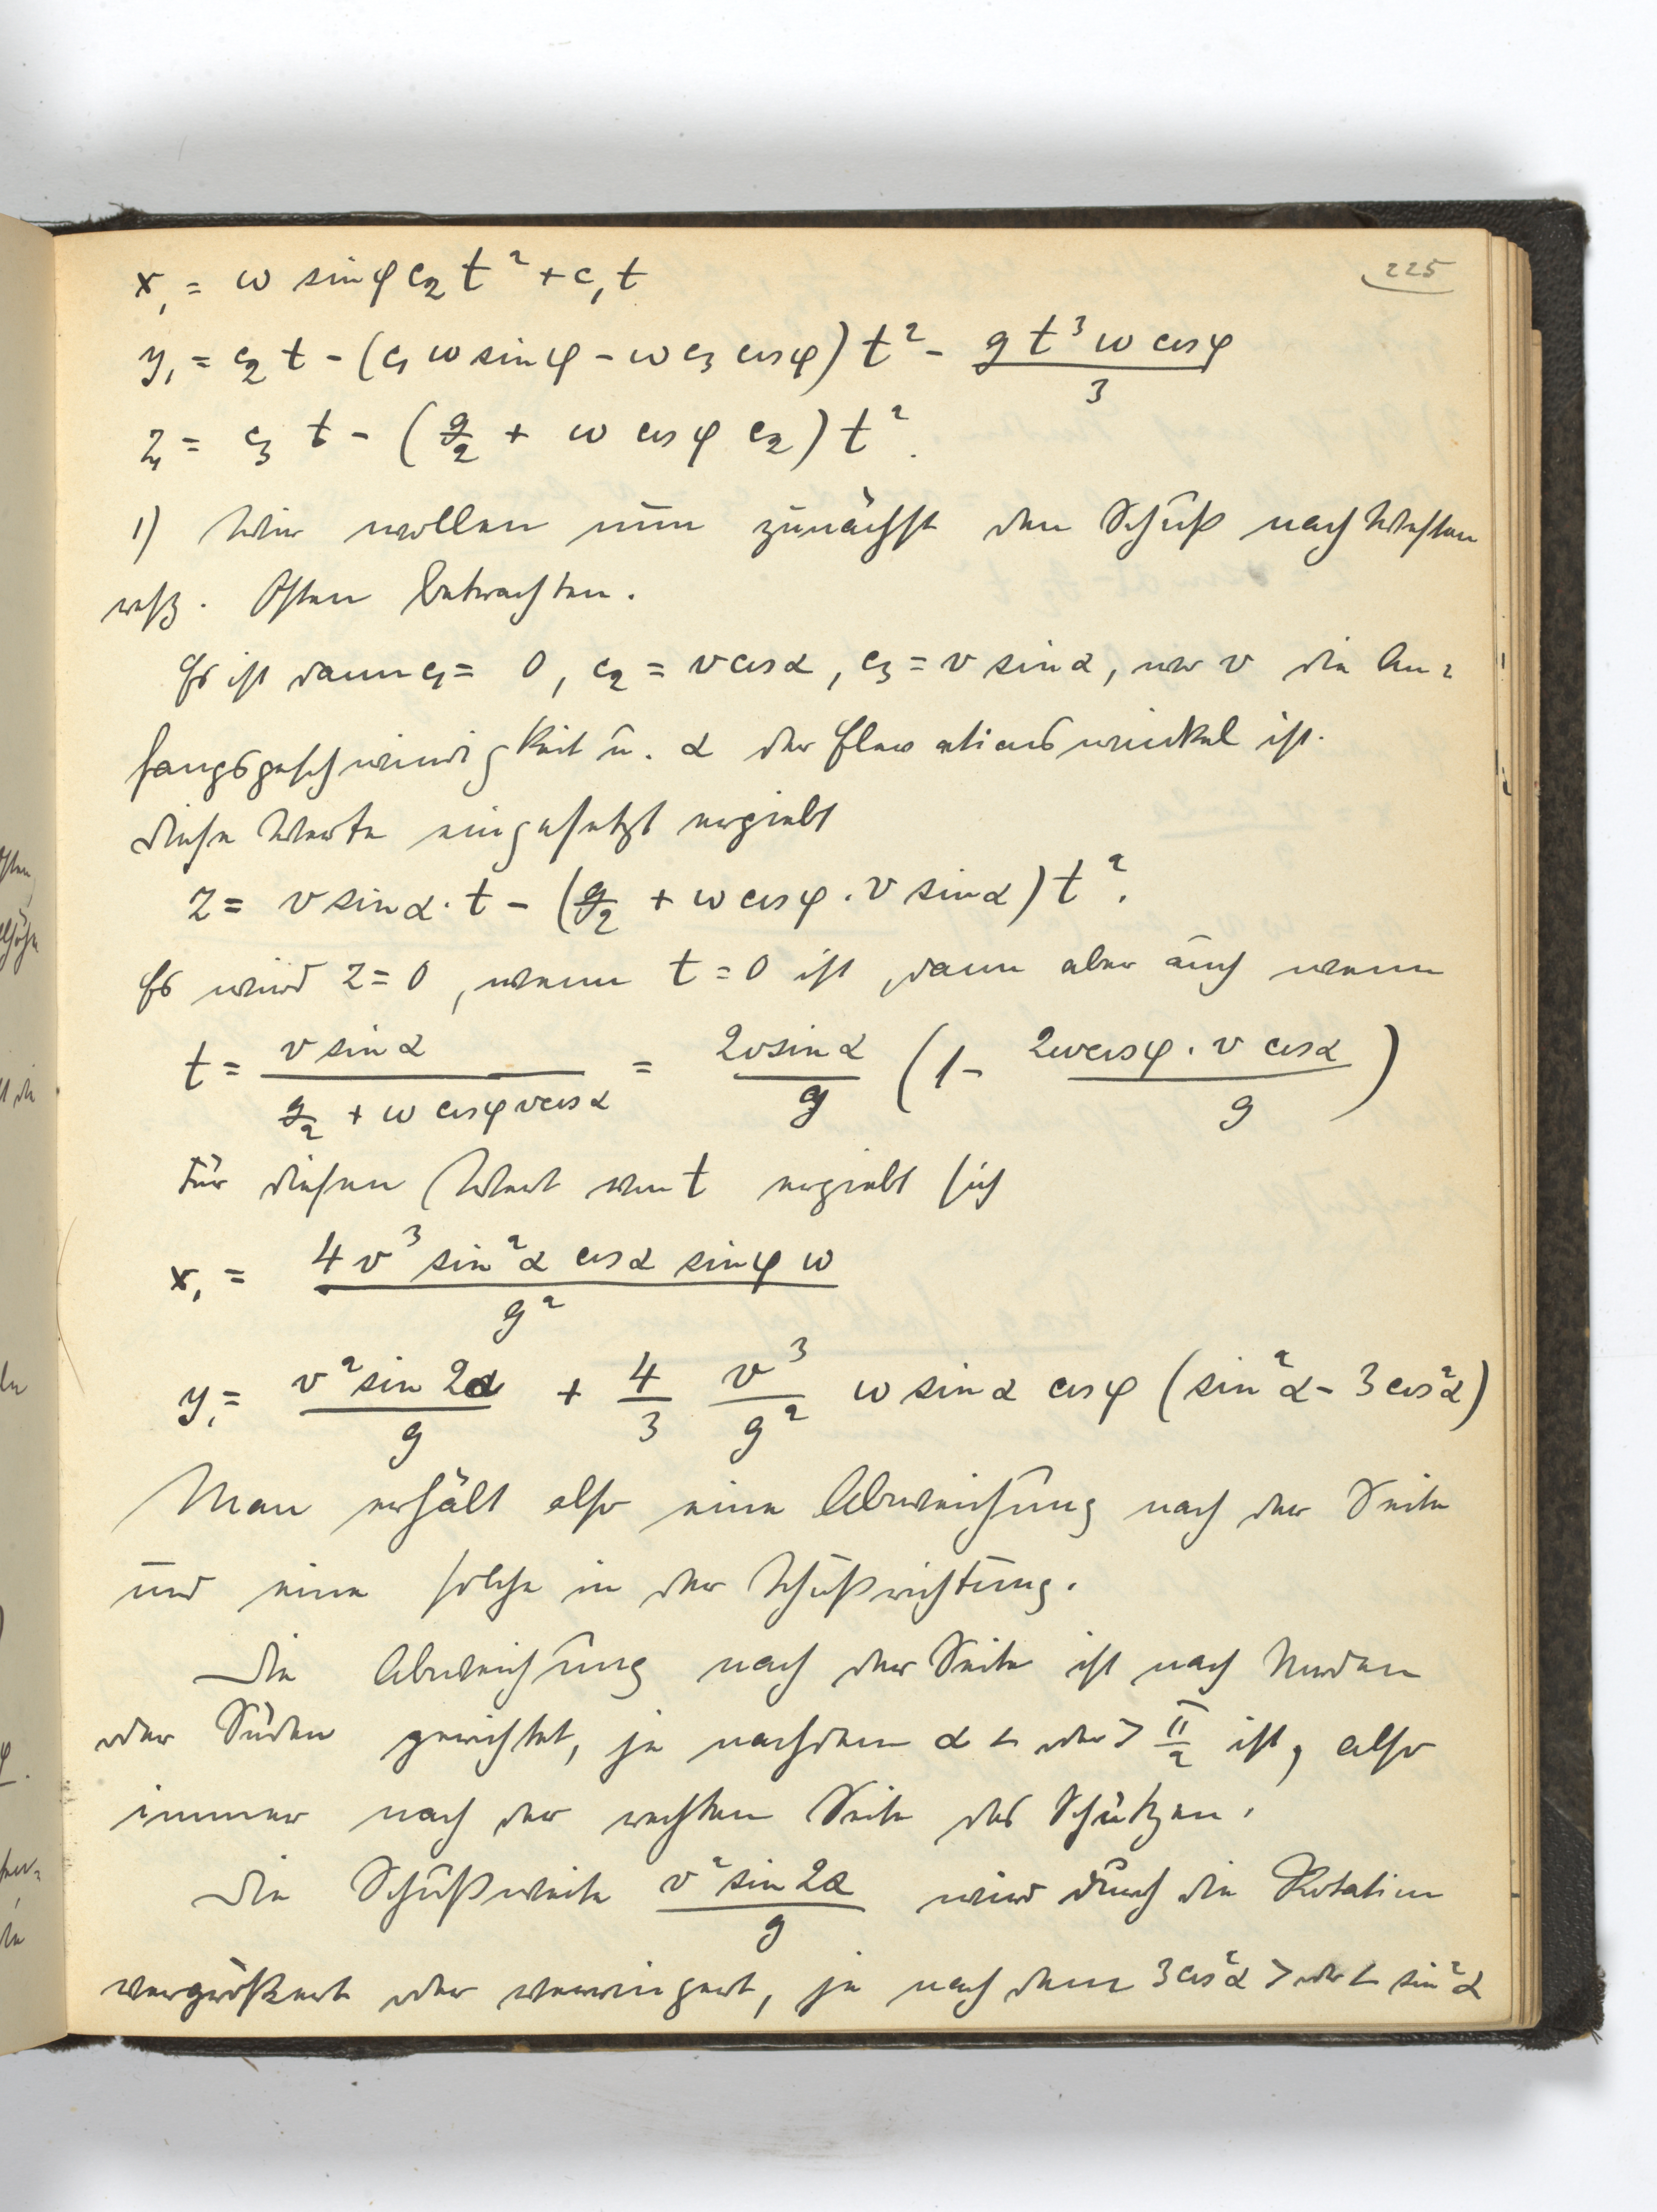 225
x₁ = ω sin φ c₂ t² + c₁ t
y₁ = c₂ t - (c₁ ω sin φ - ω c₃ cos φ) t² - g t³ ω cos φ / 3
z₁ = c₃ t - (g/2 + ω cos φ c₂) t².
1) Wir wollen nun zunächst den Schuß nach Westen
resp. Osten betrachten.
Es ist dann c₁ = 0, c₂ = v cos α, c₃ = v sin α, wo v die An=
fangsgeschwindigkeit u. α der Elevationswinkel ist.
Diese Werte eingesetzt ergiebt
z = v sin α · t - (g/2 + ω cos φ · v sin α) t².
Es wird z = 0, wenn t = 0 ist, dann aber auch wenn
t = v sin α / (g/2 + ω cos φ v cos α) = 2v sin α / g (1 - 2ω cos φ · v cos α / g)
Für diesen Wert von t ergiebt sich
x₁ = 4 v³ sin² α cos α sin φ ω / g²
y₁ = v² sin 2α / g + 4/3 v³/g² ω sin α cos φ (sin² α - 3 cos² α)
Man erhält also eine Abweichung nach der Seite
und eine solche in der Schußrichtung.
Die Abweichung nach der Seite ist nach Norden
oder Süden gerichtet, je nachdem α < oder > π/2 ist, also
immer nach der rechten Seite des Schützen.
Die Schußweite v² sin 2α / g wird durch die Rotation
vergrößert oder verringert, je nachdem 3 cos² α > oder < sin² α